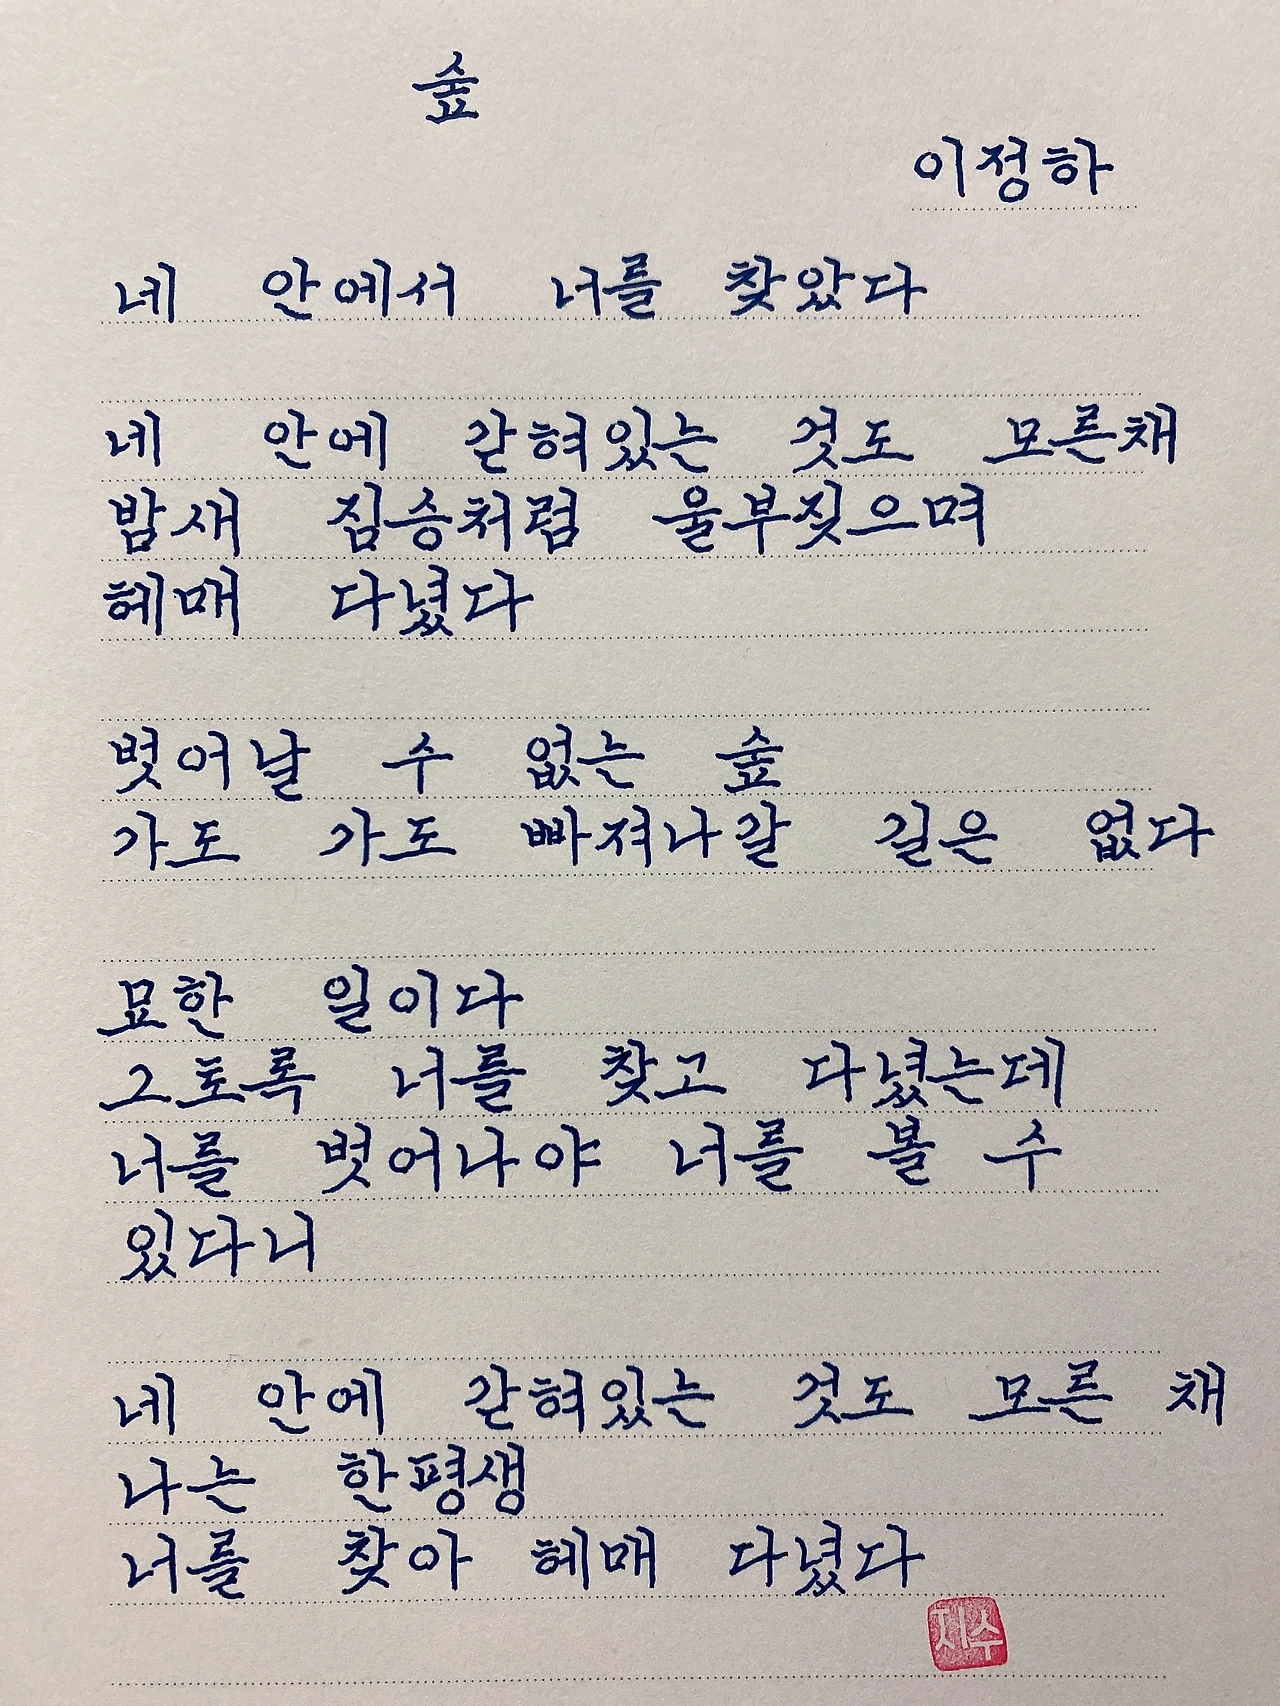 숲
이정하
네 안에서 너를 찾았다
네 안에 갇혀있는 것도 모른채
밤새 짐승처럼 울부짖으며
헤매 다녔다
벗어날 수 없는 숲
가도 가도 빠져나갈 길은 없다
묘한 일이다
그토록 너를 찾고 다녔는데
너를 벗어나야 너를 볼 수
있다니
네 안에 갇혀있는 것도 모른 채
나는 한평생
너를 찾아 헤매 다녔다
지수